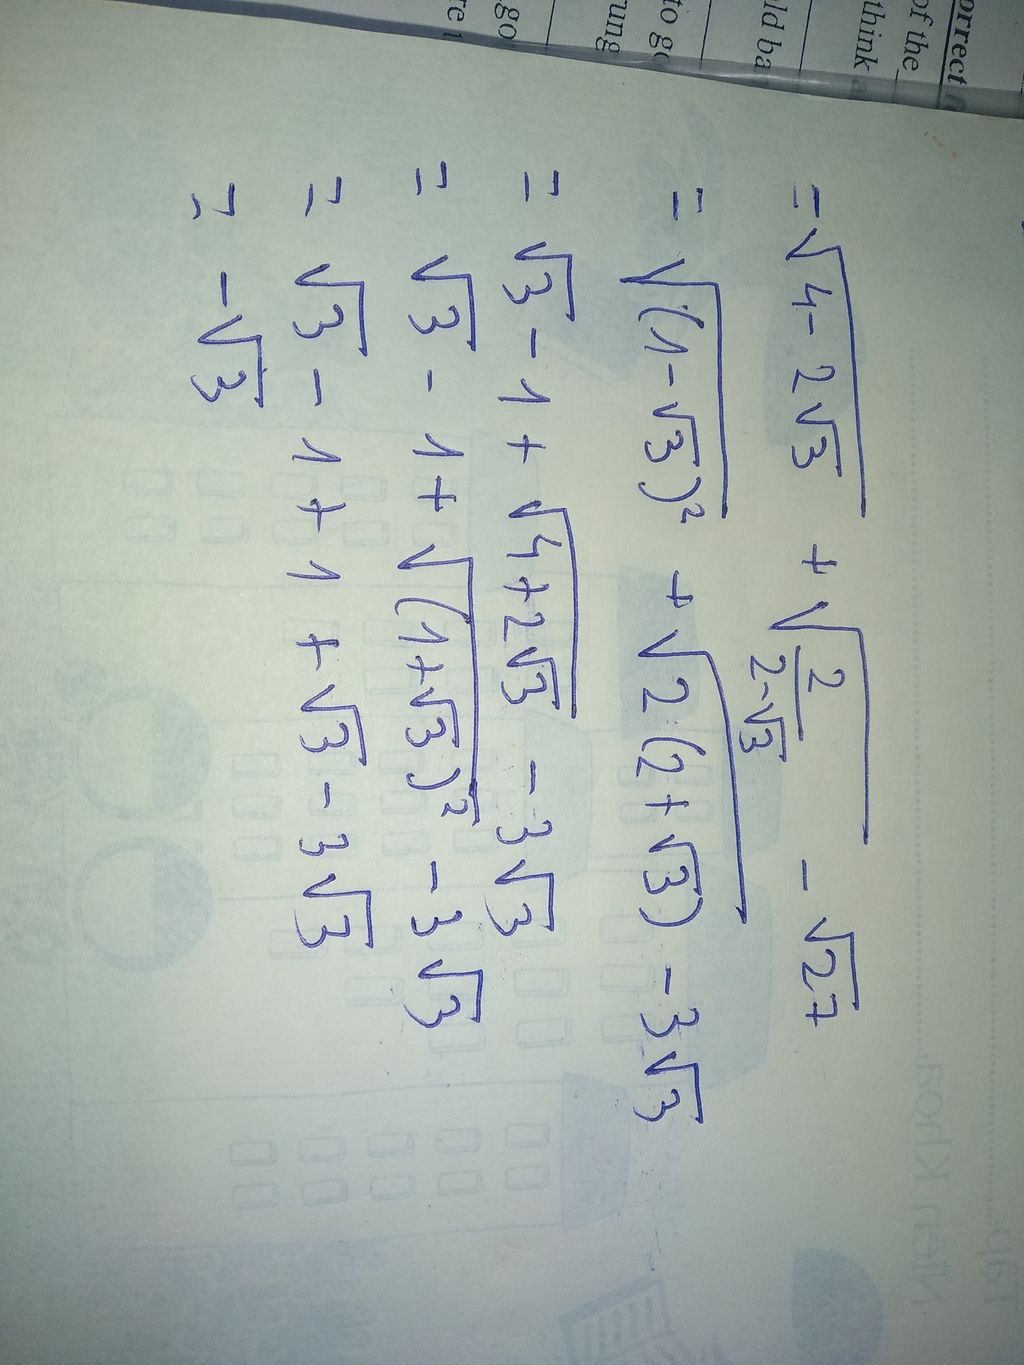 orrect
of the
think
ld ba
to go
rung
go
re
= √(4 - 2√3) + √(2/(2-√3)) - √27
= √((1-√3)²) + √(2(2+√3)) - 3√3
= √3 - 1 + √(4+2√3) - 3√3
= √3 - 1 + √((1+√3)²) - 3√3
= √3 - 1 + 1 + √3 - 3√3
= -√3